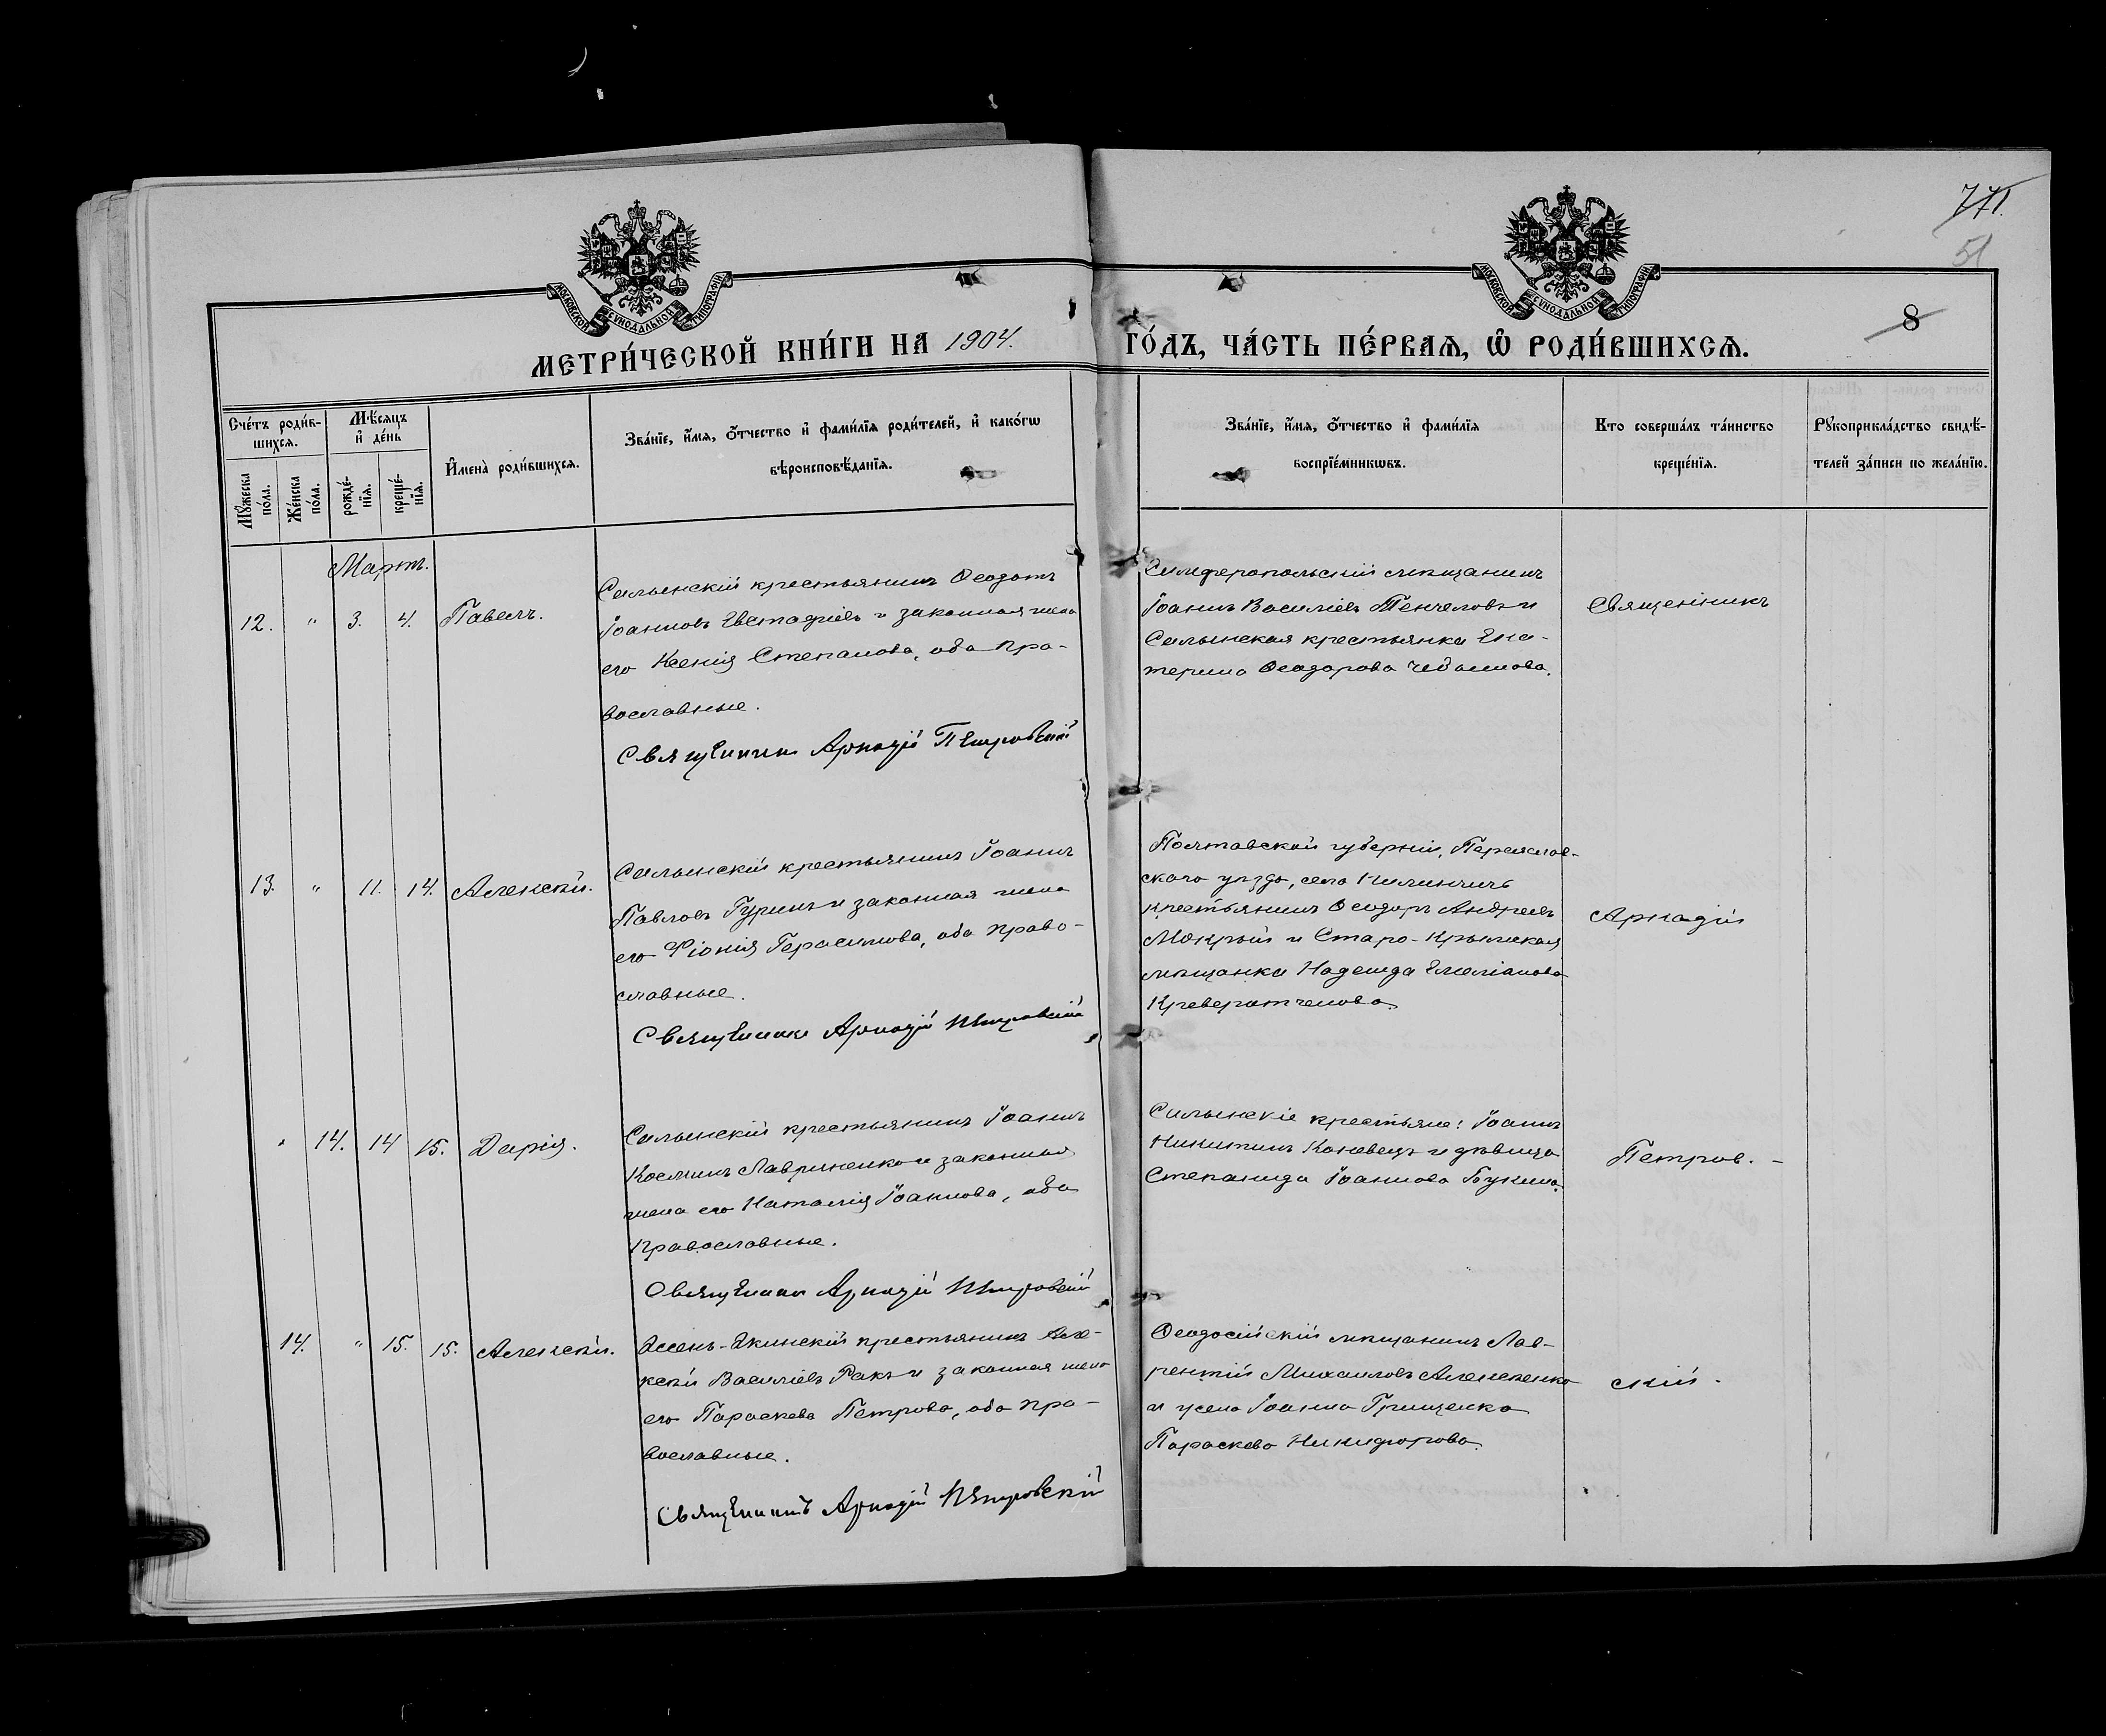 771.
51
8
МОСКОВСКОЙ СѴНОДАЛЬНОЙ ТИПОГРАФІИ
МОСКОВСКОЙ СѴНОДАЛЬНОЙ ТИПОГРАФІИ
МЕТРИ́ЧЕСКОЙ КНИ́ГИ НА 1904. ГО́ДЪ, ЧА́СТЬ ПЕ́РВАЯ, Ѡ РОДИ́ВШИХСЯ.
Сче́тъ роди́в-
шихся.
Мѣ́сяцъ
и҆ де́нь
Мꙋ́жеска
по́ла.
Же́нска
по́ла.
рожде́-
нїя.
креще́-
нїя.
И҆мена̀ роди́вшихся.
Зва́нїе, и҆́мя, ѻ҆́тчество и҆ фами́лїя роди́телей, и҆ како́гѡ
вѣроисповѣ́данїя.
Зва́нїе, и҆́мя, ѻ҆́тчество и҆ фами́лїя
воспрїе́мникѡвъ.
Кто соверша́лъ та́инство
креще́нїя.
Рꙋкоприкла́дство свидѣ́-
телей за́писи по жела́нїю.
Мартъ.
12. " 3. 4. Павелъ.
Салынскій крестьянинъ Ѳеодотъ
Іоанновъ Евстафіевъ и законная жена
его Ксенія Степанова, оба пра-
вославные.
Священникъ Аркадій Петровскій
Симферопольскій мѣщанинъ
Іоаннъ Василіевъ Тенчеловъ и
Салынская крестьянка Ека-
терина Ѳеодорова
Священникъ
13. " 11. 14. Алексѣй.
Салынскій крестьянинъ Іоаннъ
Павловъ Гуринъ и законная жена
его Фіонія Герасимова, оба право-
славные.
Священникъ Аркадій Петровскій
Полтавской губерніи, Переяслав-
скаго уѣзда, села
крестьянинъ Ѳеодоръ Андреевъ
Мокрый и Старо-Крымская
мѣщанка Надежда Емеліанова
Аркадій
" 14. 14 15. Дарія.
Салынскій крестьянинъ Іоаннъ
Косминъ Лавриненко и законная
жена его Наталія Іоаннова, оба
православные.
Священникъ Аркадій Петровскій
Салынскіе крестьяне: Іоаннъ
Никитинъ Коневецъ и дѣвица
Степанида Іоаннова Букина.
Петров. -
14. " 15. 15. Алексѣй.
Асень-Экинскій крестьянинъ Але-
ксѣй Василіевъ Ракъ и законная жена
его Параскева Петрова, оба пра-
вославные.
Священникъ Аркадій Петровскій
Ѳеодосійскій мѣщанинъ Лав-
рентій Михаиловъ Алексеенко
и жена Іоанна Грищенко
Параскева Никифорова.
скій.